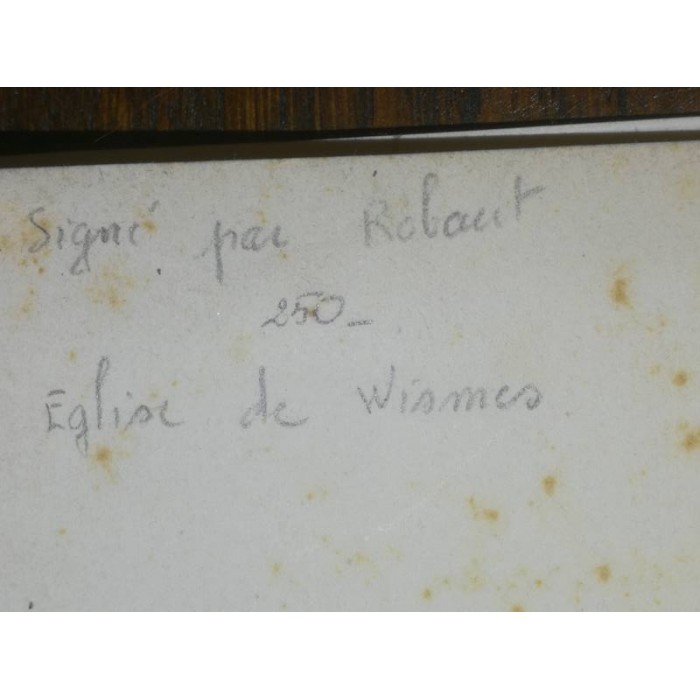 Signé par Robaut
250_
Eglise de Wismes